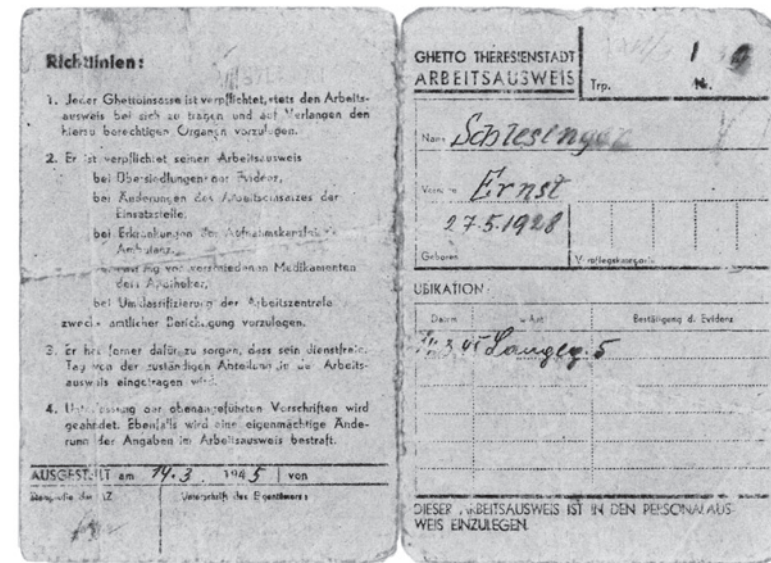 Richtlinien:
1. Jeder Ghettoinsasse ist verpflichtet, stets den Arbeits-
ausweis bei sich zu tragen und auf Verlangen den
hierzu berechtigten Organen vorzulegen.
2. Er ist verpflichtet seinen Arbeitsausweis
bei Übersiedlungen der Evidenz,
bei Änderungen des Arbeitseinsatzes der
Einsatzstelle,
bei Erkrankungen der
Ambulanz,
von verschiedenen Medikamenten
dem Apotheker,
bei Umklassifizierung der Arbeitszentrale
zwecks amtlicher Berichtigung vorzulegen.
3. Er hat ferner dafür zu sorgen, dass sein dienstfreier
Tag von der zuständigen Abteilung in den Arbeits-
ausweis eingetragen wird.
4. Unterlassung der obenangeführten Vorschriften wird
geahndet. Ebenfalls wird eine eigenmächtige Ände-
rung der Angaben im Arbeitsausweis bestraft.
AUSGESTELLT am 14.3. 1945 von
des Eigentümers:
GHETTO THERESIENSTADT
ARBEITSAUSWEIS
Trp. Nr.
Name Schlesinger
Vorname Ernst
27.5.1928
Geboren Verpflegskategorie
UBIKATION:
Datum Bestätigung d. Evidenz
3.45 Langeg. 5
DIESER ARBEITSAUSWEIS IST IN DEN PERSONALAUS-
WEIS EINZULEGEN.